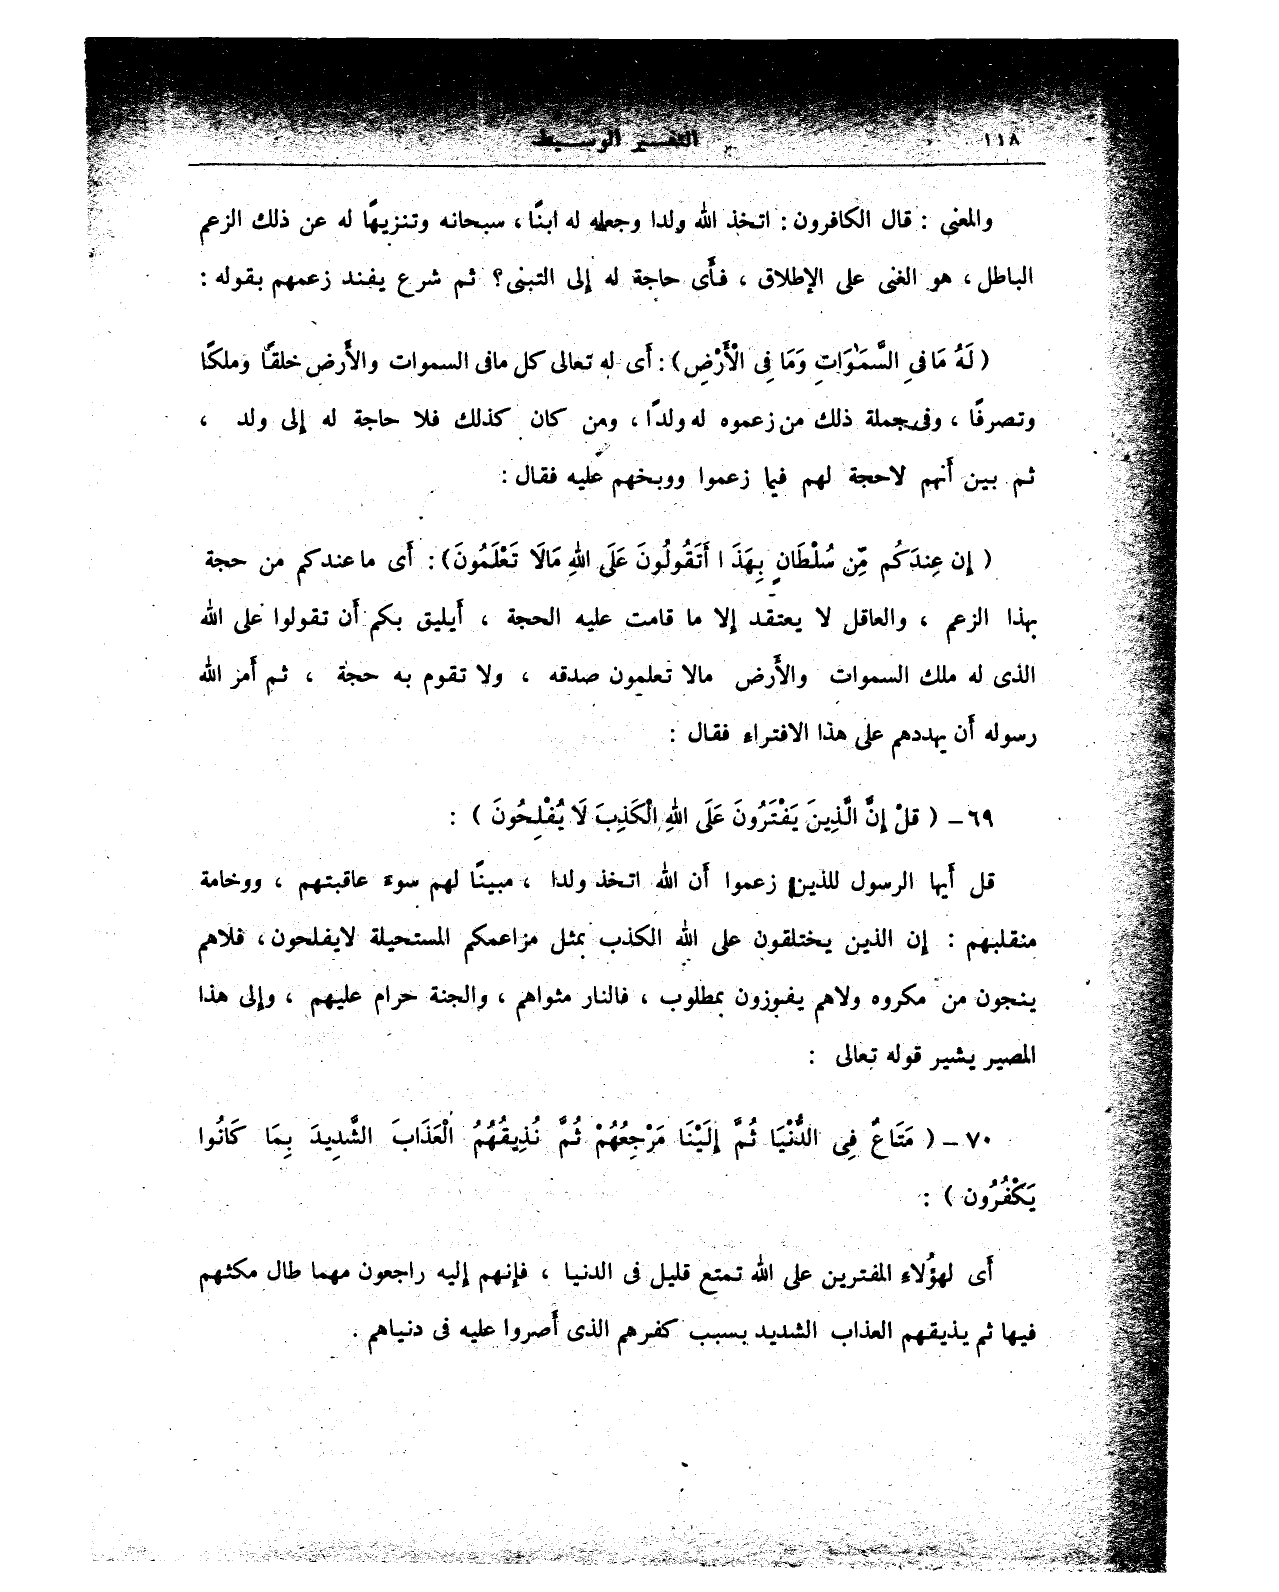 ١١٨ التفسير الوسيط
والمعنى : قال الكافرون : اتخذ الله ولدا وجعله له ابنًا ، سبحانه وتنزيهًا له عن ذلك الزعم
الباطل ، هو الغنى على الإطلاق ، فأى حاجة له إلى التبنى؟ ثم شرع يفند زعمهم بقوله :
( لَهُ مَا فىِ السَّمَٰوَاتِ وَمَا فِى الْأَرْضِ ) : أى له تعالى كل مافى السموات والأرض خلقًا وملكًا
وتصرفًا ، وفى جملة ذلك من زعموه له ولدًا ، ومن كان كذلك فلا حاجة له إلى ولد ،
ثم بين أنهم لاحجة لهم فيما زعموا ووبخهم عليه فقال :
( إِن عِندَكُم مِّن سُلْطَانٍ بِهَذَا أَتَقُولُونَ عَلَى اللهِ مَالَا تَعْلَمُونَ ) : أى ما عندكم من حجة
بهذا الزعم ، والعاقل لا يعتقد إلا ما قامت عليه الحجة ، أيليق بكم أن تقولوا على الله
الذى له ملك السموات والأرض مالا تعلمون صدقه ، ولا تقوم به حجة ، ثم أمر الله
رسوله أن يهددهم على هذا الافتراء فقال :
٦٩ – ( قلْ إِنَّ الَّذِينَ يَفْتَرُونَ عَلَى اللهِ الْكَذِبَ لَا يُفْلِحُونَ ) :
قل أيها الرسول للذين زعموا أن الله اتخذ ولدا ، مبينًا لهم سوء عاقبتهم ، ووخامة
منقلبهم : إن الذين يختلقون على الله الكذب بمثل مزاعمكم المستحيلة لايفلحون ، فلاهم
ينجون من مكروه ولاهم يفوزون بمطلوب ، فالنار مثواهم ، والجنة حرام عليهم ، وإلى هذا
المصير يشير قوله تعالى :
٧٠ – ( مَتَاعٌ فِى الدُّنْيَا ثُمَّ إِلَيْنَا مَرْجِعُهُمْ ثُمَّ نُذِيقُهُمُ الْعَذَابَ الشَّدِيدَ بِمَا كَانُوا
يَكْفُرُون ) :
أى لهؤُلاءِ المفترين على الله تمتع قليل فى الدنيا ، فإنهم إليه راجعون مهما طال مكثهم
فيها ثم يذيقهم العذاب الشديد بسبب كفرهم الذى أصروا عليه فى دنياهم .